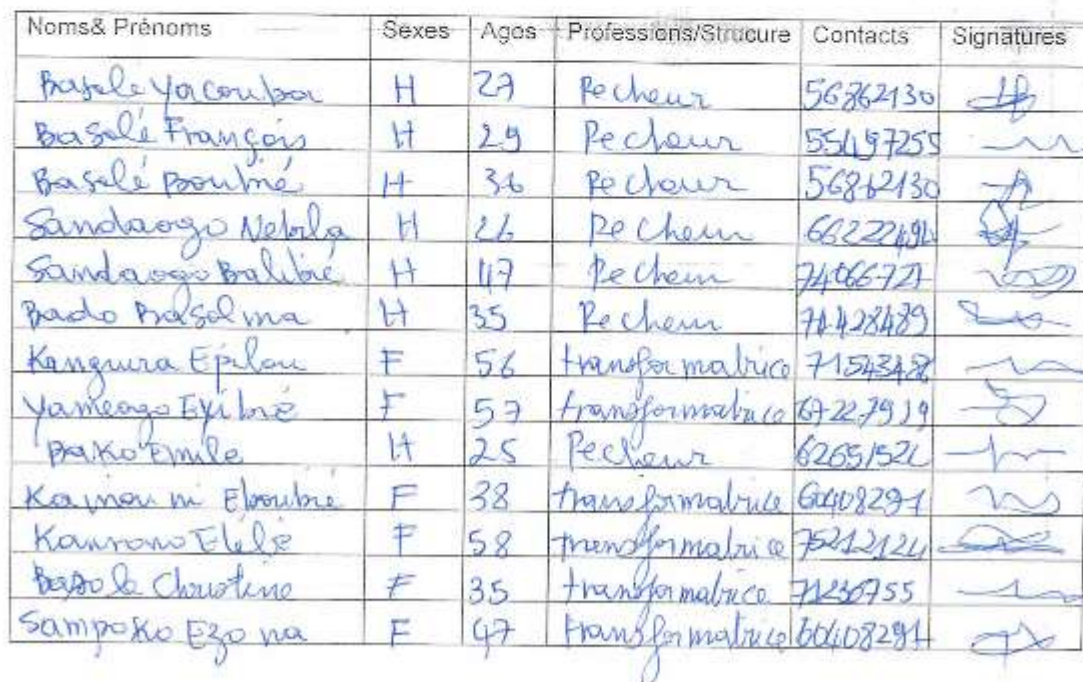 Noms& Prénoms Sexes Ages Professions/Strucure Contacts Signatures
Basolé Yacouba H 27 Pecheur 56862130
Basolé François H 29 Pecheur 55497255
Basolé Boubié H 36 Pecheur 56862130
Sandaogo Nebila H 26 Pecheur
Sandaogo Balibié H 47 Pecheur 74066727
Bado Basolma H 35 Pecheur
F 56 transformatrice
Yameogo Eyibié F 57 transformatrice 67227919
Bako Emile H 25 Pecheur
Eboubié F 38 transformatrice 60408291
F 58 transformatrice 75212124
Bazolé Christine F 35 transformatrice 71236755
Sampoko Ezona F 47 transformatrice 60408291